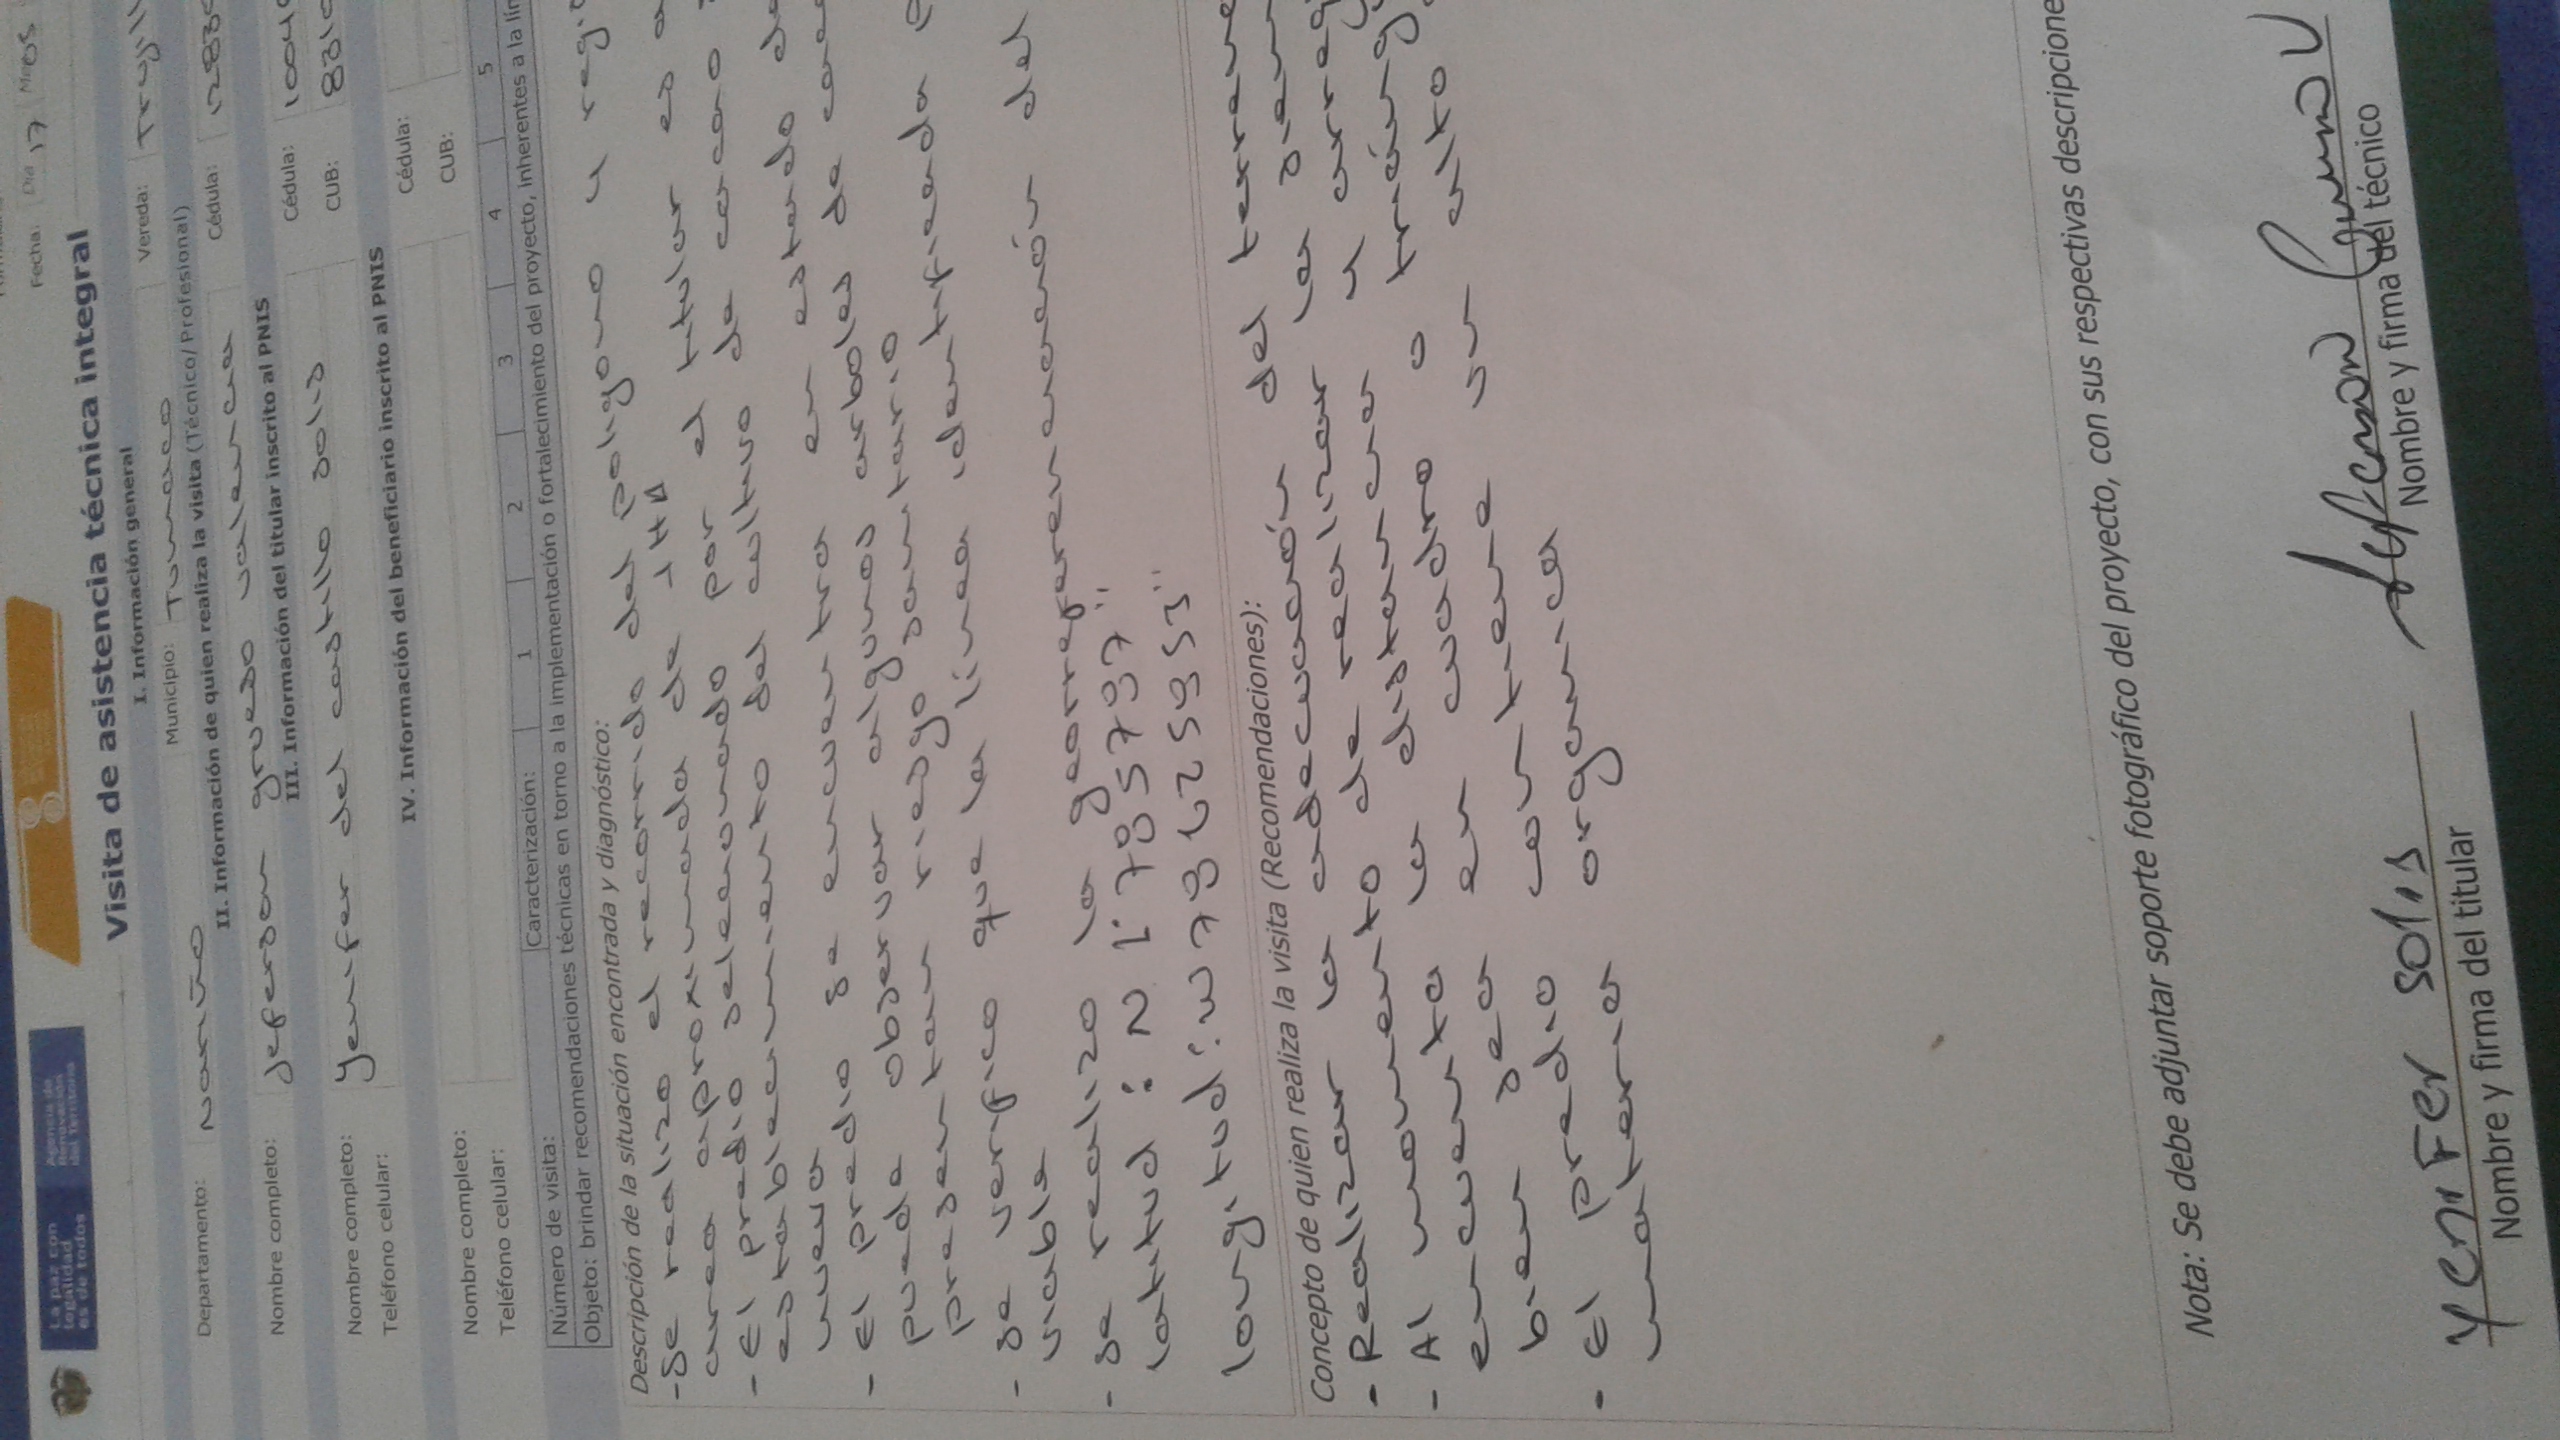 La paz con
legalidad
es de todos
Agencia de
Renovación
del Territorio
Fecha: Día 17 Mes 05
Visita de asistencia técnica integral
I. Información general
Departamento: Nariño Municipio: Tumaco Vereda:
II. Información de quien realiza la visita (Técnico/ Profesional)
Nombre completo: Jeferson grueso valencia Cédula: 1283
III. Información del titular inscrito al PNIS
Nombre completo: Yenifer del castillo solis Cédula: 1004
Teléfono celular: CUB: 831
IV. Información del beneficiario inscrito al PNIS
Nombre completo: Cédula:
Teléfono celular: CUB:
Número de visita: Caracterización: 1 2 3 4 5
Objeto: brindar recomendaciones técnicas en torno a la implementación o fortalecimiento del proyecto, inherentes a la lín
Descripción de la situación encontrada y diagnóstico:
- Se realizo el recorrido del poligono y regi
area aproximada de 1 HA
- El predio seleccionado por el titular es a
establecimiento del cultivo de cacao
nueva
- El predio se encuentra en estado de
puede observar algunos arboles de cacao
presentan riesgo sanitario
- se verifico que la línea identificada e
viable
- se realizo la georreferenciación del
latitud: N 1°78'5797"
longitud: W 79°62'5953"
Concepto de quien realiza la visita (Recomendaciones):
- Realizar la adecuación del terreno
- Al momento de realizar la siem
encuenta la distancia y arreg
bien sea en cuadro o triángu
- El predio contiene un alto
materia organica
Nota: Se debe adjuntar soporte fotográfico del proyecto, con sus respectivas descripcione
Yenifer solis
Nombre y firma del titular
Nombre y firma del técnico